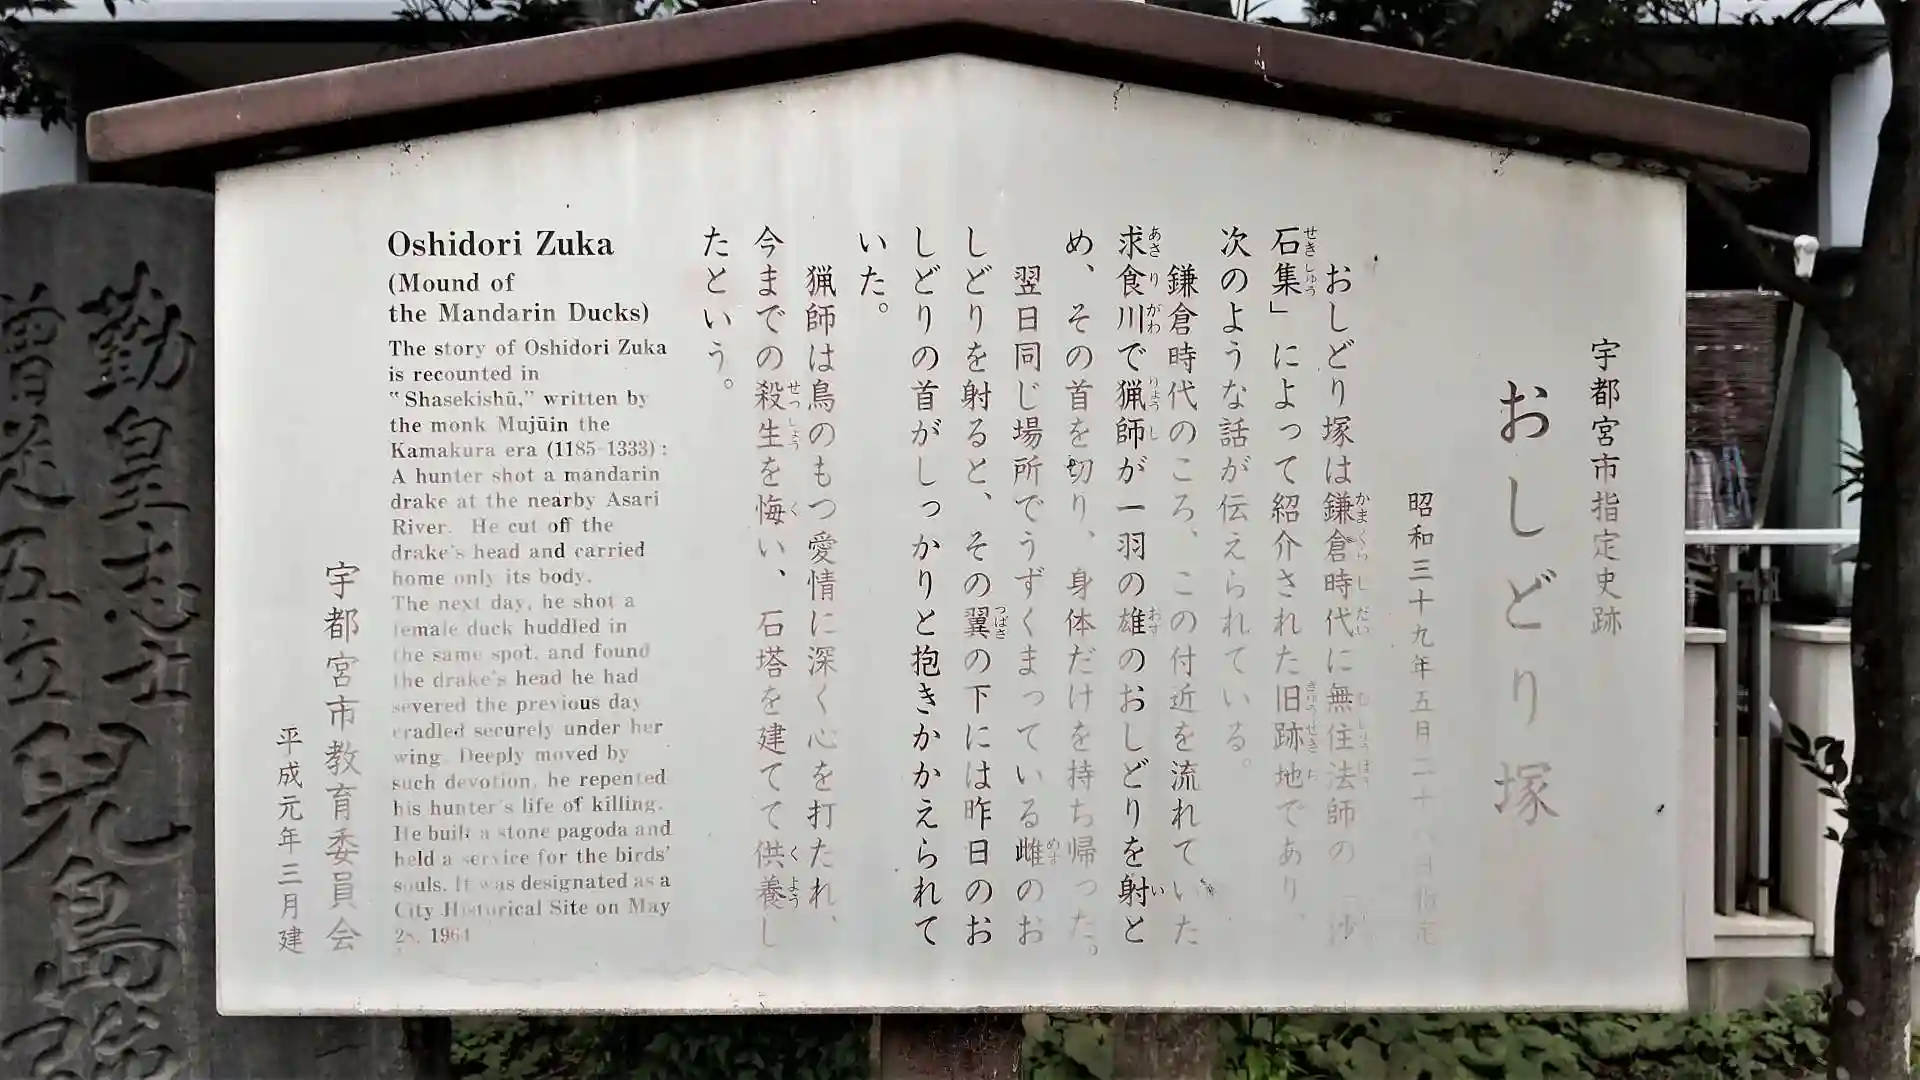 宇都宮市指定史跡
おしどり塚
昭和三十九年五月二十八日指定
おしどり塚は鎌倉時代に無住法師の「沙
石集」によって紹介された旧跡地であり、
次のような話が伝えられている。
鎌倉時代のころ、この付近を流れていた
求食川で猟師が一羽の雄のおしどりを射と
め、その首を切り、身体だけを持ち帰った。
翌日同じ場所でうずくまっている雌のお
しどりを射ると、その翼の下には昨日のお
しどりの首がしっかりと抱きかかえられて
いた。
猟師は鳥のもつ愛情に深く心を打たれ、
今までの殺生を悔い、石塔を建てて供養し
たという。
Oshidori Zuka
(Mound of
the Mandarin Ducks)
The story of Oshidori Zuka
is recounted in
"Shasekishū," written by
the monk Mujūin the
Kamakura era (1185-1333):
A hunter shot a mandarin
drake at the nearby Asari
River. He cut off the
drake's head and carried
home only its body.
The next day, he shot a
female duck huddled in
the same spot, and found
the drake's head he had
severed the previous day
cradled securely under her
wing. Deeply moved by
such devotion, he repented
his hunter's life of killing.
He built a stone pagoda and
held a service for the birds'
souls. It was designated as a
City Historical Site on May
28, 1964
宇都宮市教育委員会
平成元年三月建
勤皇志士
五位
兒島